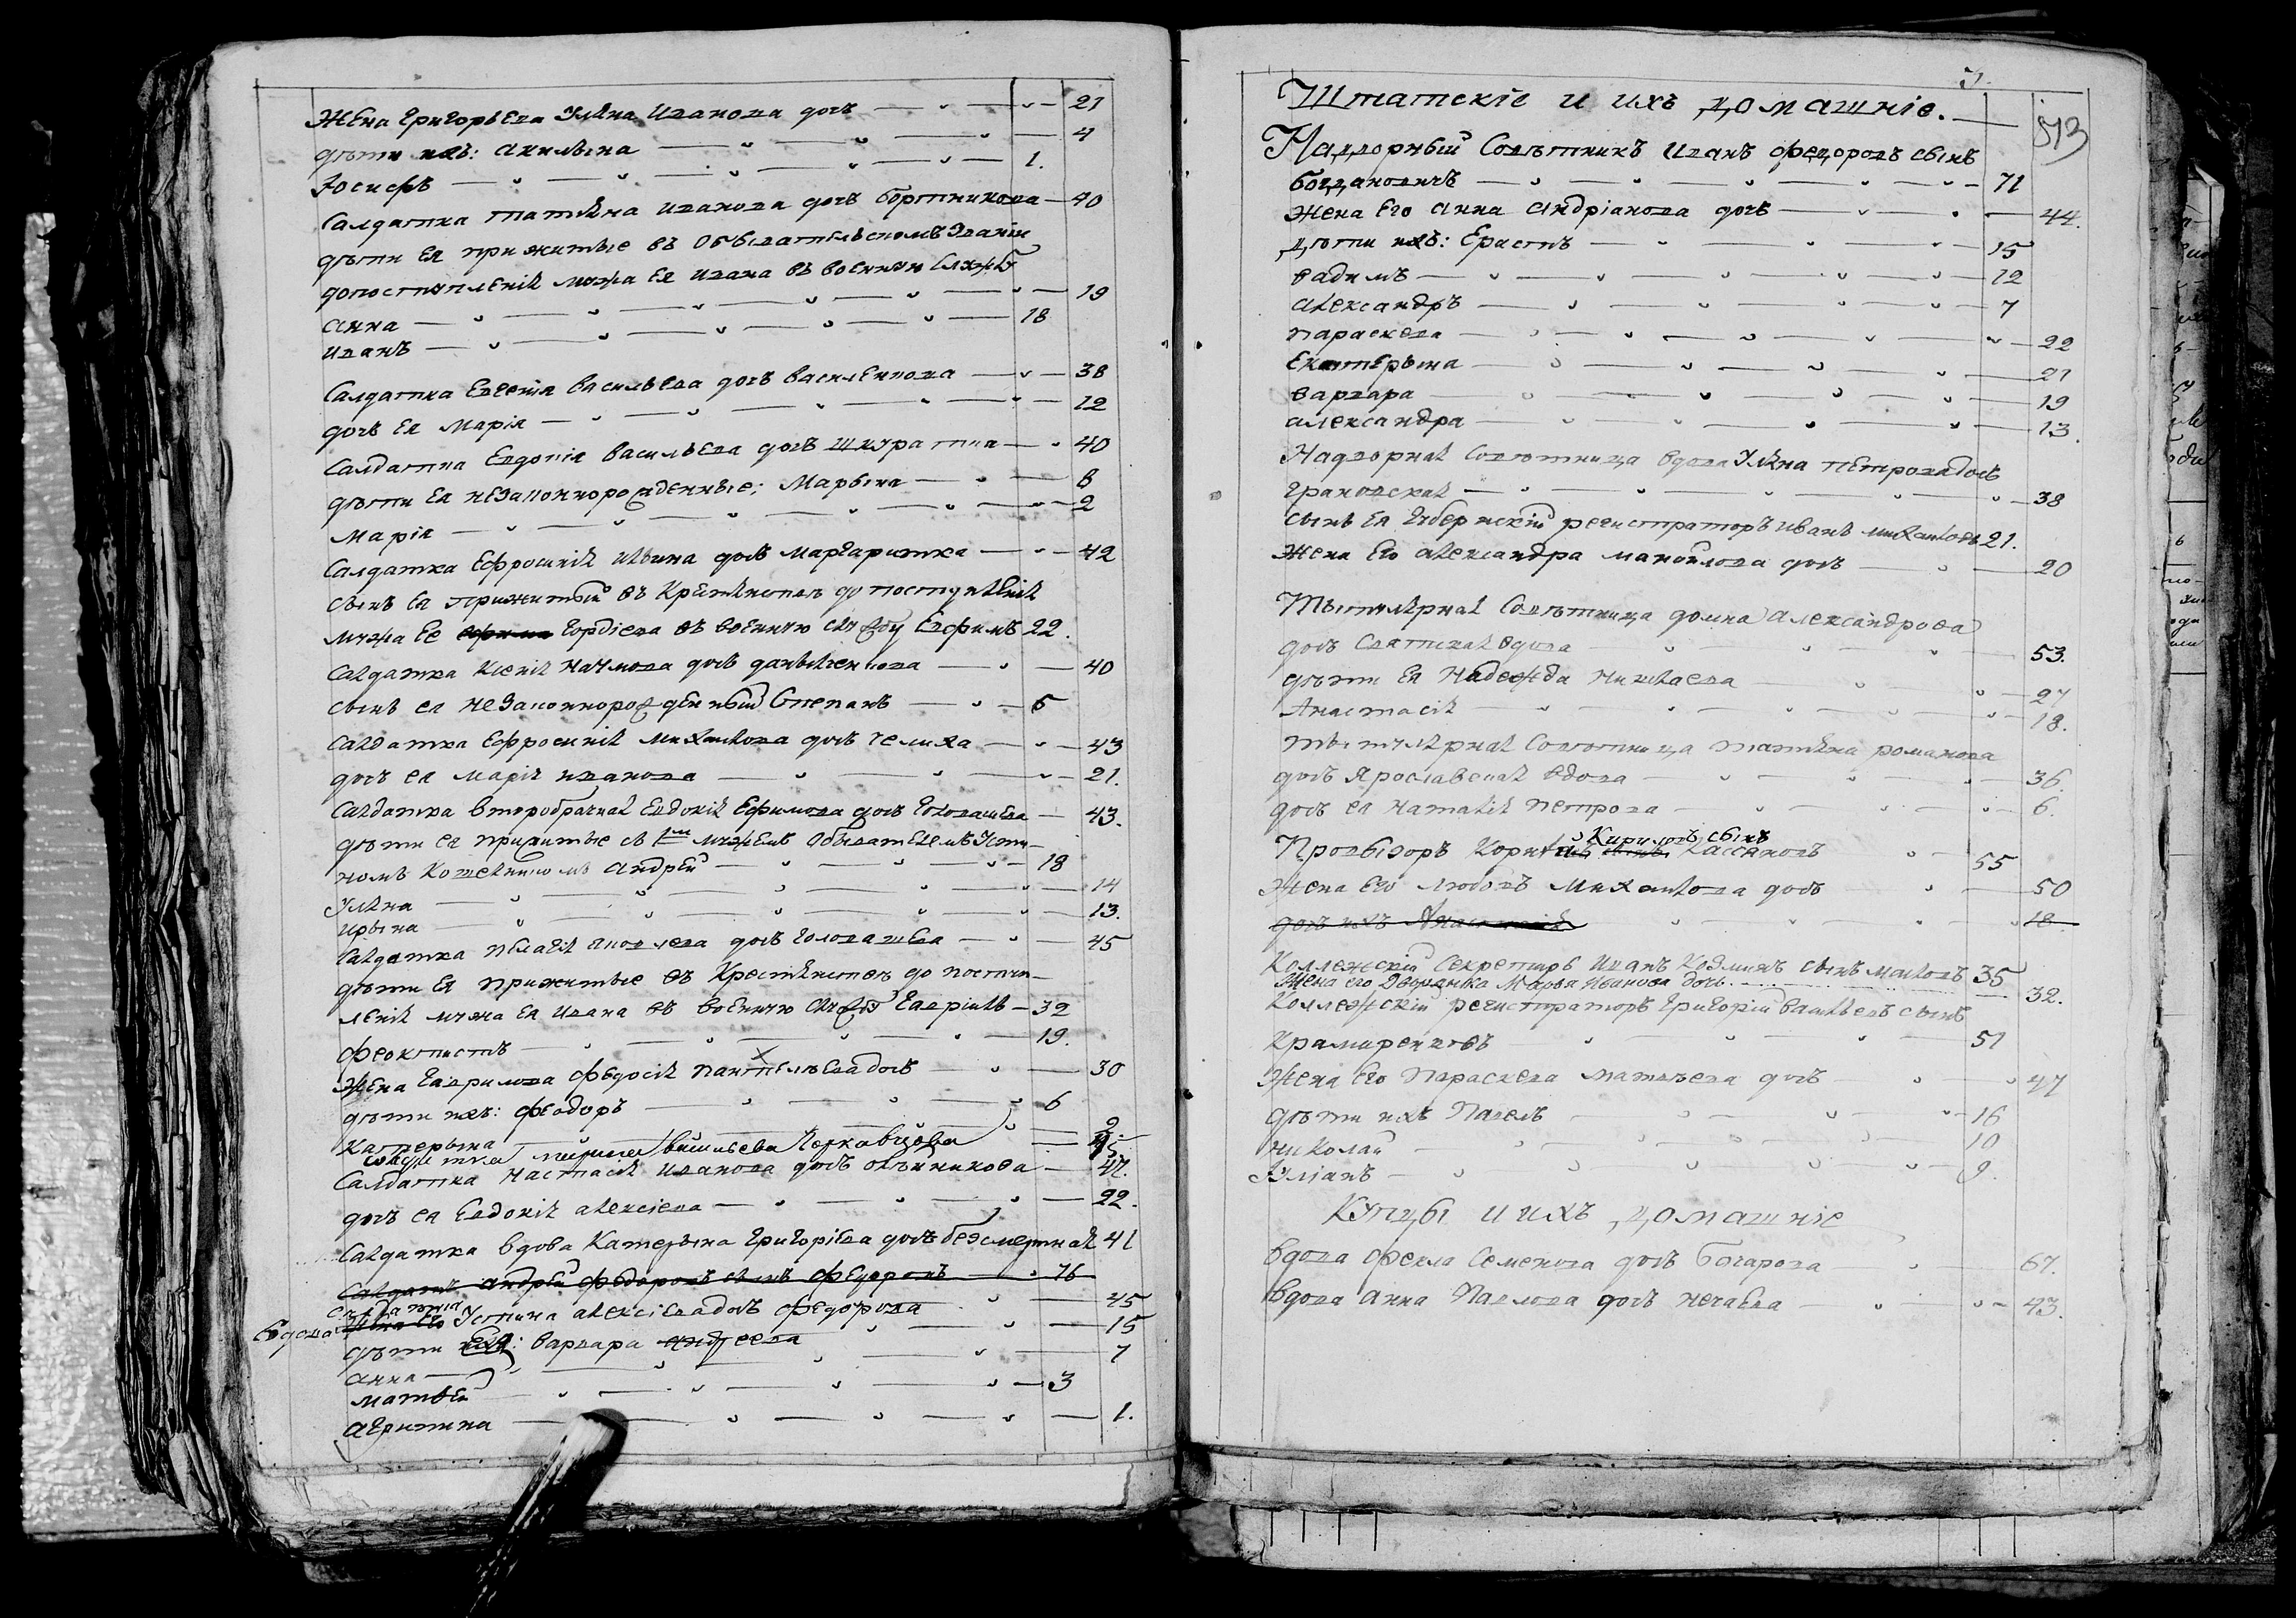 Жена Григорьева Уляна Иванова дочъ 21
дѣти ихъ: Акилына 4
Іосифъ 1.
Салдатка Татіяна Иванова дочъ Бортникова 40
дѣти ея прижитые въ Обывательскомъ Званіи
до поступленія мужа ея Ивана въ военную службу
Анна 19
Иванъ 18
Салдатка Евгенія Васильева дочъ Василенкова 38
дочъ ея Марія 12
Салдатка Евдокія Васильева дочъ Шкуратна 40
дѣти ея незаконнорожденные: Марына 8
Марія 2
Салдатка Ефросинія Ильина дочъ Маргаритка 42
сынъ ея прижитый въ Крестянствѣ до поступленія
мужа ее Гордіева въ военную службу Евфимъ 22.
Салдатка Ксенія Наумова дочъ Данильченкова 40
сынъ ея незаконнорожденный Степанъ 5
Салдатка Ефросинія Михайлова дочъ Челиха 43
дочъ ея Марія Иванова 21.
Салдатка второбрачная Евдокія Ефимова дочъ Головашева 43.
дѣти ея прижитые съ 1м мужемъ Обывателемъ Усти-
номъ Кошельниковъ Андрей 18
Уляна 14
Ирына 13.
Салдатка Пелагія Яковлева дочъ Головашева 45
дѣти ея прижитые въ Крестянствѣ до поступ-
ленія мужа ея Ивана въ военную службу Гавріилъ 32
Феоктистъ 19.
Жена Гаврилова Федосія Пантелѣева дочъ 30
дѣти ихъ: Феодоръ 6
Катерына 2.
Салдатка Васильева Перкавцова 45
Салдатка Настасія Иванова дочъ Олѣйникова 47.
дочъ ея Евдокія Алексіева 22.
Салдатка вдова Катерына Григоріева дочъ Безсмертная 41
Салдатъ Андрей Федоровъ сынъ Федоровъ 76
Вдова салдатка Жена его Устина Алексіева дочъ Федорова 45
дѣти ея: Варвара Андреева 15
Анна 7
Матвѣй 3
Агрипина 1.
3.
Штатскіе и ихъ домашніе.
513
Надворный Совѣтникъ Иванъ Федоровъ сынъ
Богдановичъ 71
Жена его Анна Андріанова дочъ 44.
дѣти ихъ: Ерастъ 15
Вадимъ 12
Александръ 7
Параскева 22
Екатерына 21
Варвара 19
Александра 13.
Надворная Совѣтница вдова Уляна Петрова дочъ
Грановская 38
сынъ ея Губернскій регистраторъ Иванъ Михайловъ 21.
Жена его Александра Манойлова дочъ 20
Тытулярная Совѣтница Домна Александрова
дочъ Святская вдова 53.
дѣти ея Надежда Николаева 27
Анастасія 18.
Тытулярная Совѣтница Татіяна Романова
дочъ Ярославская вдова 36.
дочъ ея Наталія Петрова 6.
Кириловъ сынъ
Провызоръ Корнилій сынъ Кассановъ 55
Жена его Любовъ Михайлова дочъ 50
дочъ ихъ Анастасія 18
Коллежскій Секретарь Иванъ Козминъ сынъ Мальовъ 35
Жена его Дворянка Марва Иванова дочъ 32.
Коллежскій регистраторъ Григорій Васильевъ сынъ
Крамиренковъ 51
Жена его Параскева Матвѣева дочъ 47
дѣти ихъ Павелъ 16
Николай 10
Іуліанъ 9.
Купцы и ихъ домашніе
Вдова Фекла Семенова дочъ Бочарова 67.
Вдова Анна Павлова дочъ Нечаева 43.